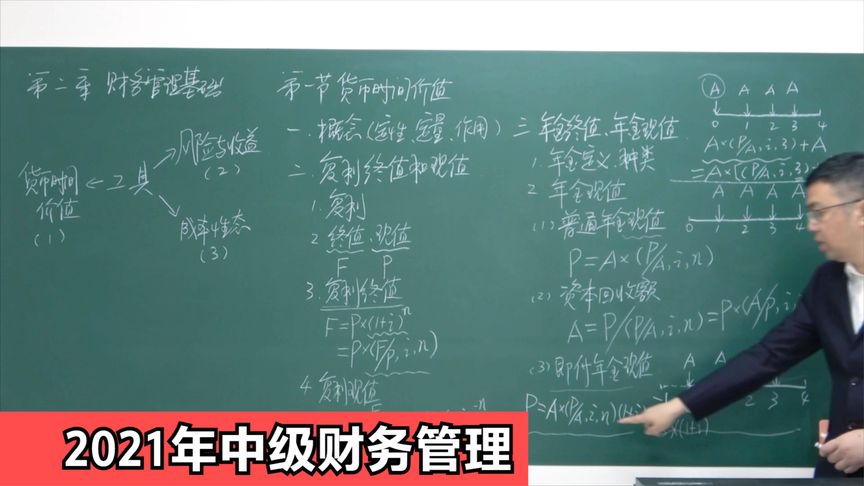 第二章 财务管理基础
货币时间价值
(1)
工具
风险与收益
(2)
成本性态
(3)
第一节 货币时间价值
一、概念(定性、定量、作用)
二、复利终值和现值
1. 复利
2. 终值、现值
F P
3. 复利终值
F=P×(1+i)^n
=P×(F/P,i,n)
4. 复利现值
三、年金终值、年金现值
1. 年金定义、种类
2. 年金现值
(1) 普通年金现值
P=A×(P/A,i,n)
(2) 资本回收额
A=P/(P/A,i,n)=P×(A/P,i,
(3) 即付年金现值
P=A×(P/A,i,n)(1+i)
A A A A
0 1 2 3 4
A×(P/A,i,3)+A
=A×[(P/A,i,3)+
A A A A
0 1 2 3 4
A A
2 3 4
×(1+i)
2021年中级财务管理